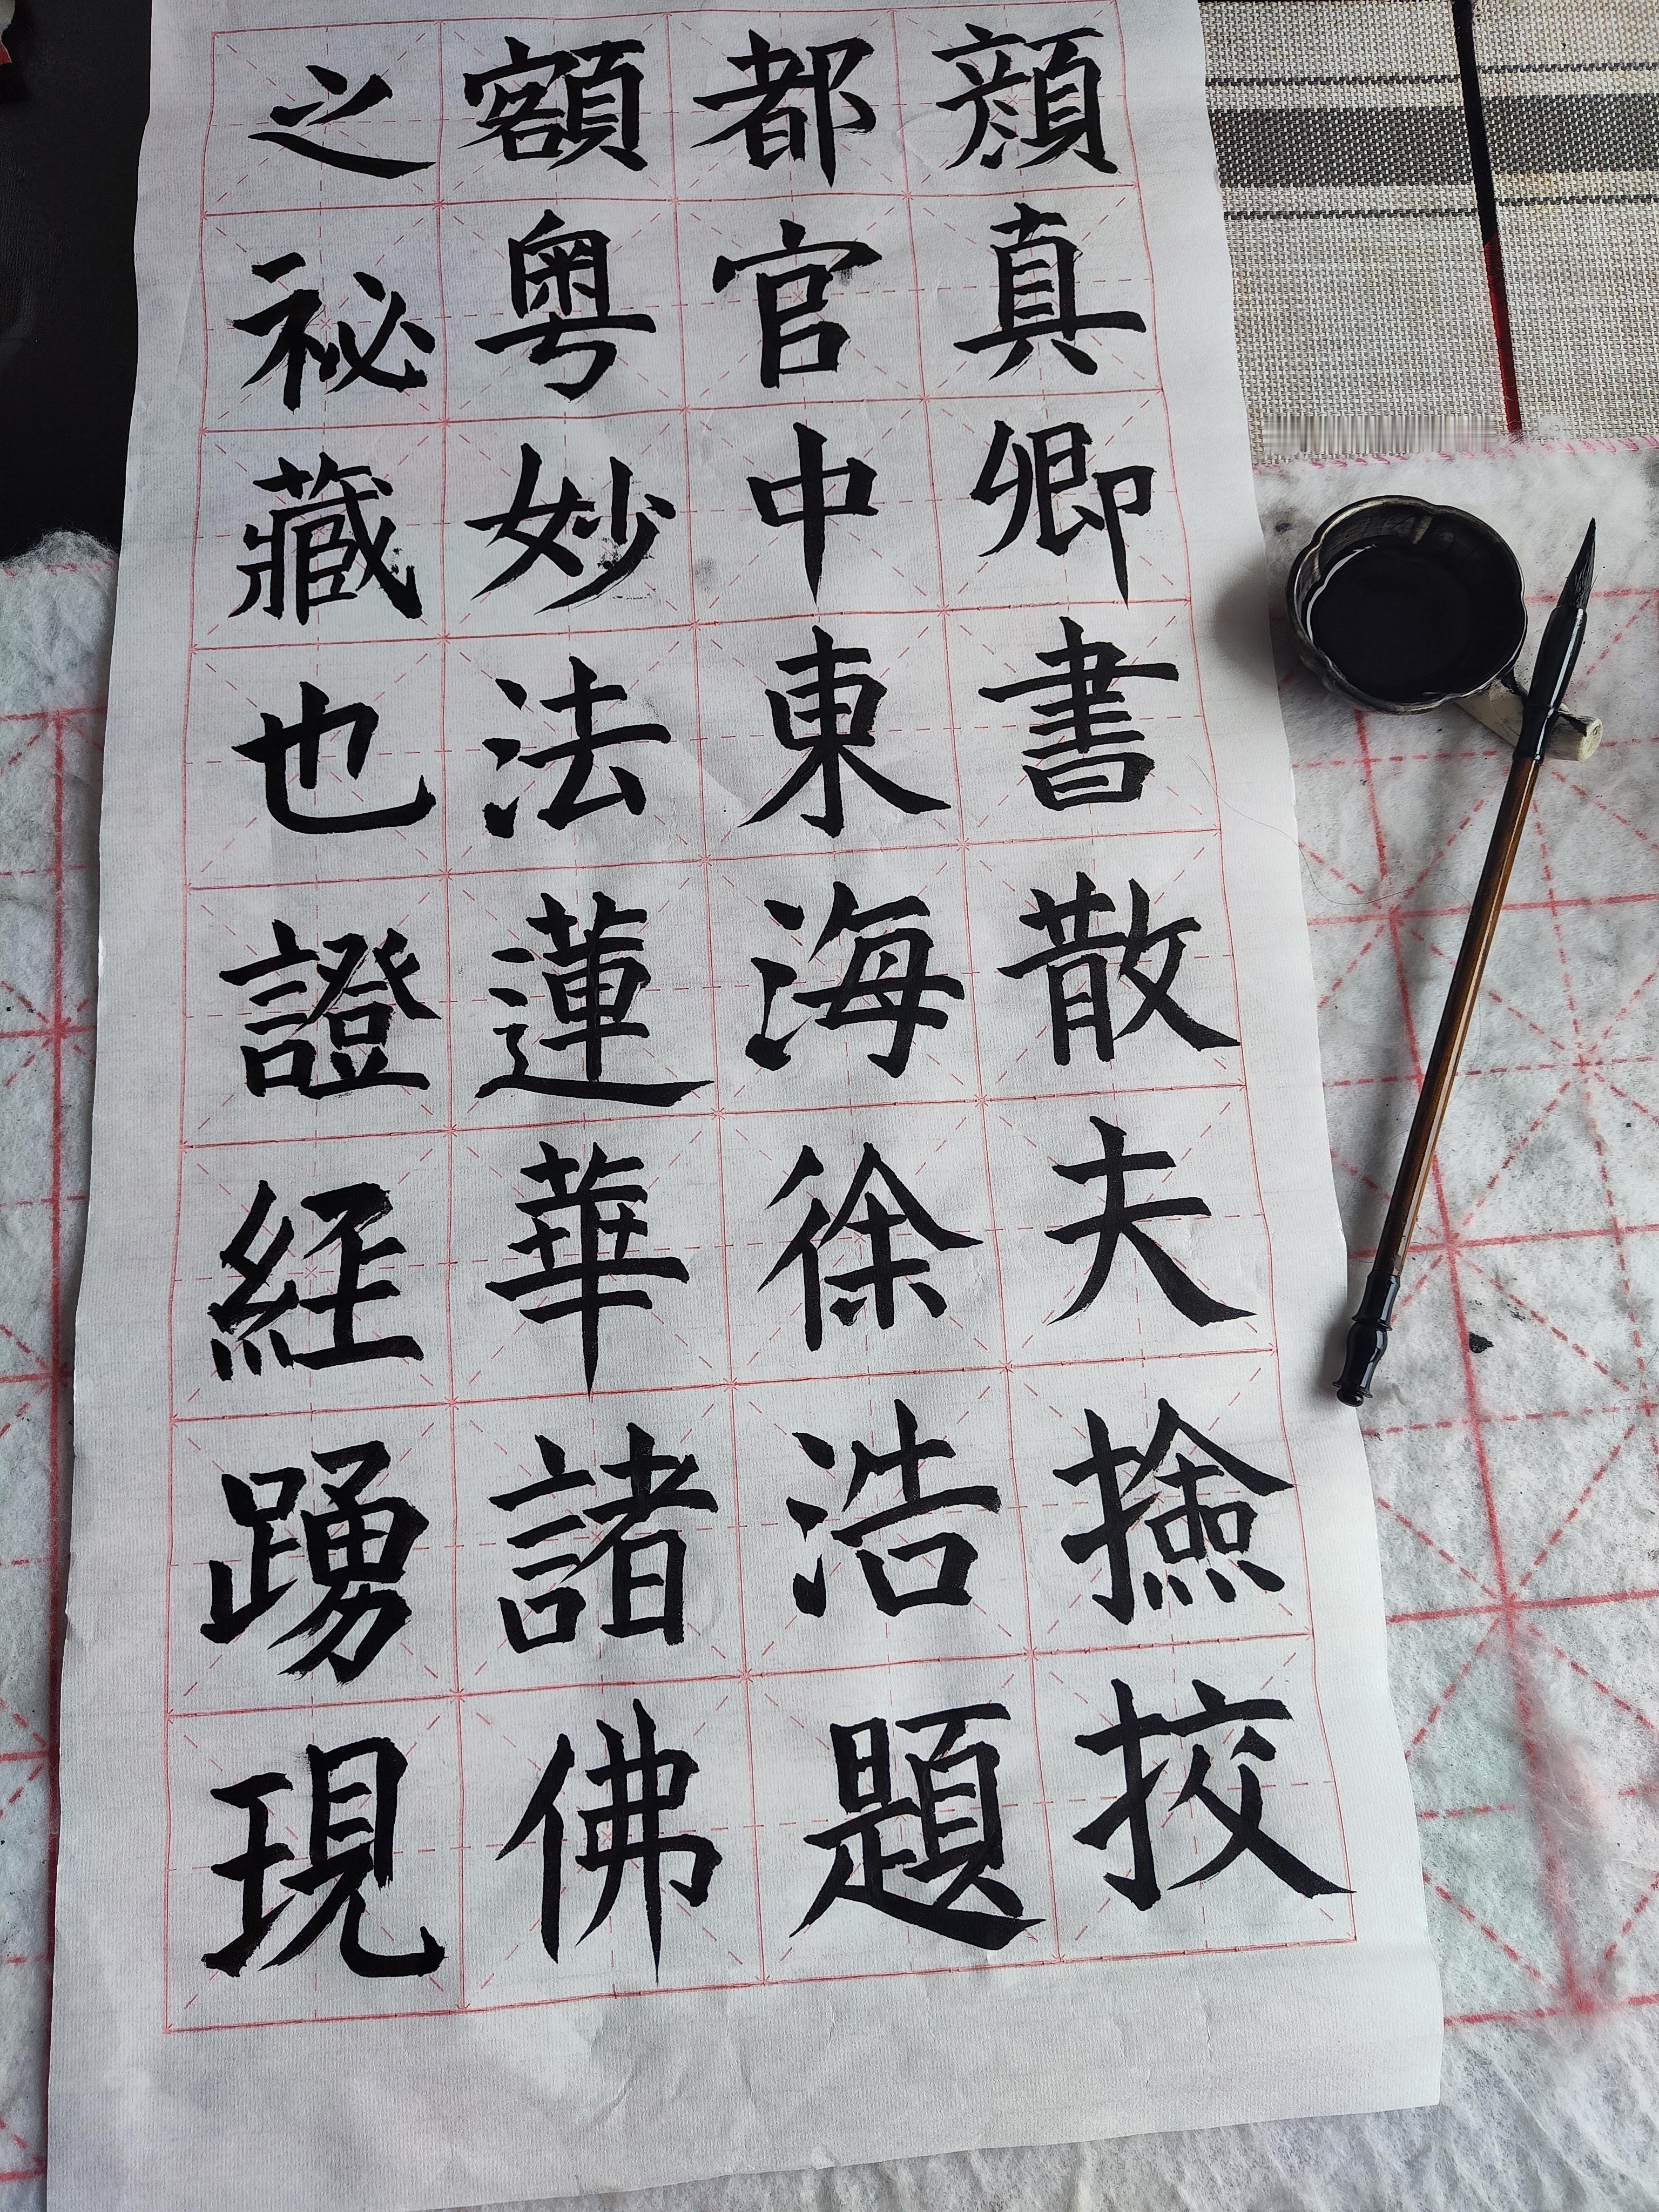 顔真卿書散夫撿挍
都官中東海徐浩題
額粵妙法蓮華諸佛
之祕藏也證經踴現